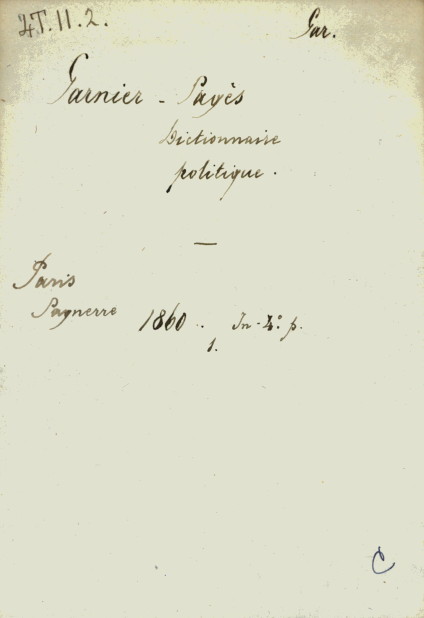 4T.11.2.
Gar.
Garnier - Pagès
Dictionnaire
politique.
—
Paris
Pagnerre 1860. In-4º p.
1.
C